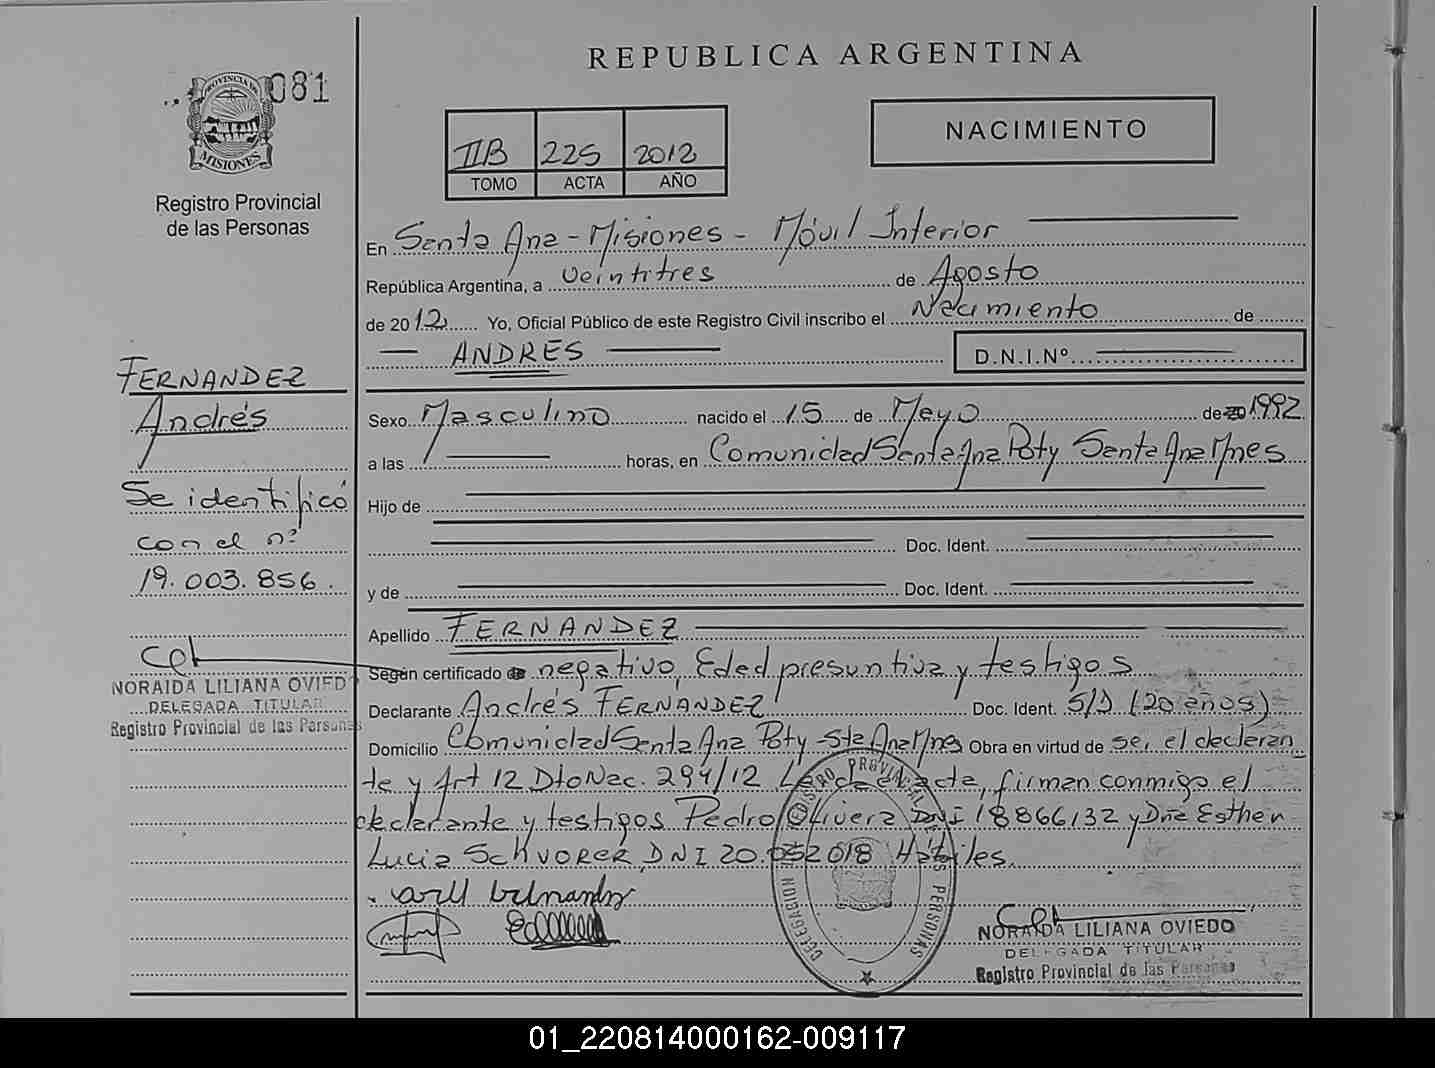 081
PROVINCIA DE
MISIONES
Registro Provincial
de las Personas
REPUBLICA ARGENTINA
IIB 225 2012
TOMO ACTA AÑO
NACIMIENTO
En Santa Ana - Misiones - Móvil Interior
República Argentina, a veintitres de Agosto
de 2012 Yo, Oficial Público de este Registro Civil inscribo el Nacimiento de
ANDRES D.N.I.Nº
FERNANDEZ
Andrés
Se identificó
con el nº
19.003.856.
NORAIDA LILIANA OVIEDO
DELEGADA TITULAR
Registro Provincial de las Personas
Sexo Masculino nacido el 15 de Mayo de 20 1992
a las horas, en Comunidad Santa Ana Poty Santa Ana Mnes
Hijo de
Doc. Ident.
y de Doc. Ident.
Apellido FERNANDEZ
Según certificado de negativo, Edad presuntiva y testigos
Declarante Andrés FERNANDEZ Doc. Ident. S/D (20 años)
Domicilio Comunidad Santa Ana Poty - Sta Ana Mnes Obra en virtud de ser el declaran
te y Art 12 Dto Nac. 294/12 acta, firman conmigo el
declarante y testigos Pedro Olivera DNI 18866132 y Dña Esther
Lucia SCHVORER, DNI 20.052018 Hábiles.
REGISTRO PROVINCIAL DE LAS PERSONAS
DELEGACION
NORAIDA LILIANA OVIEDO
DELEGADA TITULAR
Registro Provincial de las Personas
01_220814000162-009117